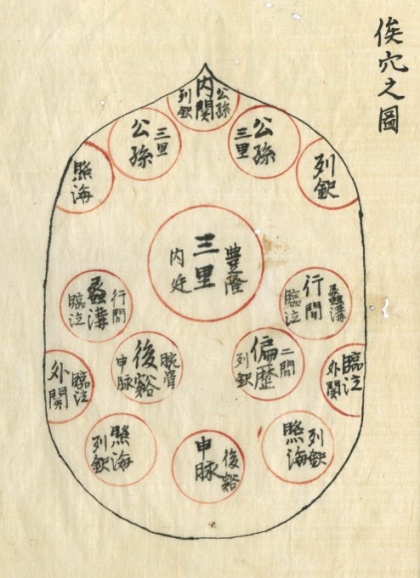 俟穴之圖
公孫
内関
列缺
公孫
三里
三里
公孫
列缺
照海
豊隆
三里
内廷
蠡溝
行間
臨泣
行間
蠡溝
臨泣
二間
偏歴
列缺
腕骨
後谿
申脉
臨泣
外関
臨泣
外関
列缺
照海
後谿
申脉
照海
列缺